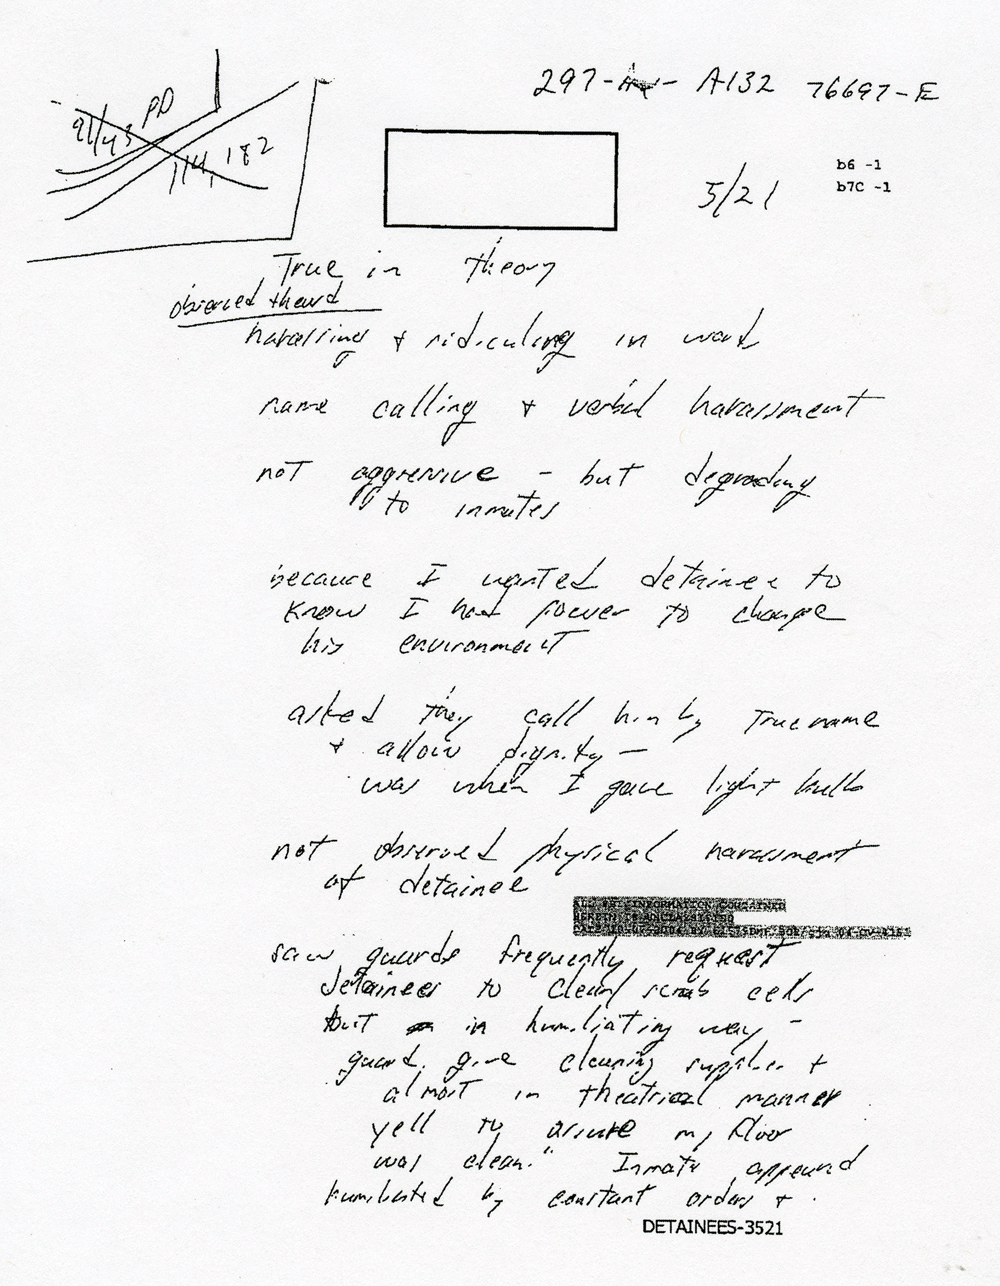 297- - A132 76697-E
PD
91/43
114, 182
b6 -1
b7C -1
5/21
True in theory
observed + heard
harassing & ridiculing in word
name calling + verbal harassment
not aggressive - but degrading
to inmates
because I wanted detainee to
know I had power to change
his environment
asked they call him by True name
+ allow dignity —
was when I gave light bulb
not observed physical harassment
of detainee
ALL FBI INFORMATION CONTAINED
HEREIN IS UNCLASSIFIED
saw guards frequently request
detainees to clean/scrub cells
but in humiliating way -
guard. give cleaning supplies +
almost in theatrical manner
yell to my floor
was clean." Inmate appeared
humiliated by constant orders +
DETAINEES-3521